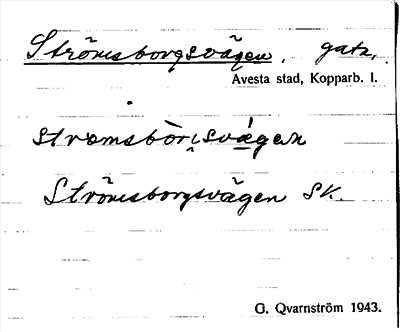 Strömsborgsvägen, gata,
Avesta stad, Kopparb. l.
Strömsborgsvägen SK.
G. Qvarnström 1943.